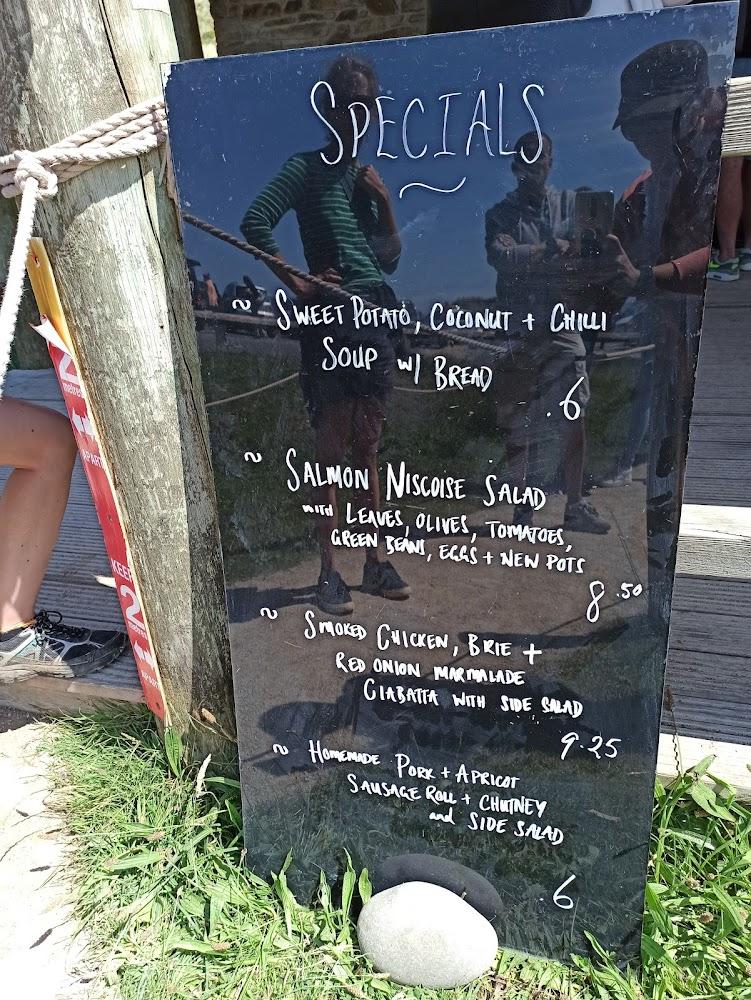 SPECIALS
~ SWEET POTATO, COCONUT + CHILLI
SOUP W/ BREAD
.6
~ SALMON NISCOISE SALAD
WITH LEAVES, OLIVES, TOMATOES,
GREEN BEANS, EGGS + NEW POTS
8.50
~ SMOKED CHICKEN, BRIE +
RED ONION MARMALADE
CIABATTA WITH SIDE SALAD
9.25
~ HOMEMADE PORK + APRICOT
SAUSAGE ROLL + CHUTNEY
and SIDE SALAD
.6
2
metres
APART
KEEP
2
metres
APART